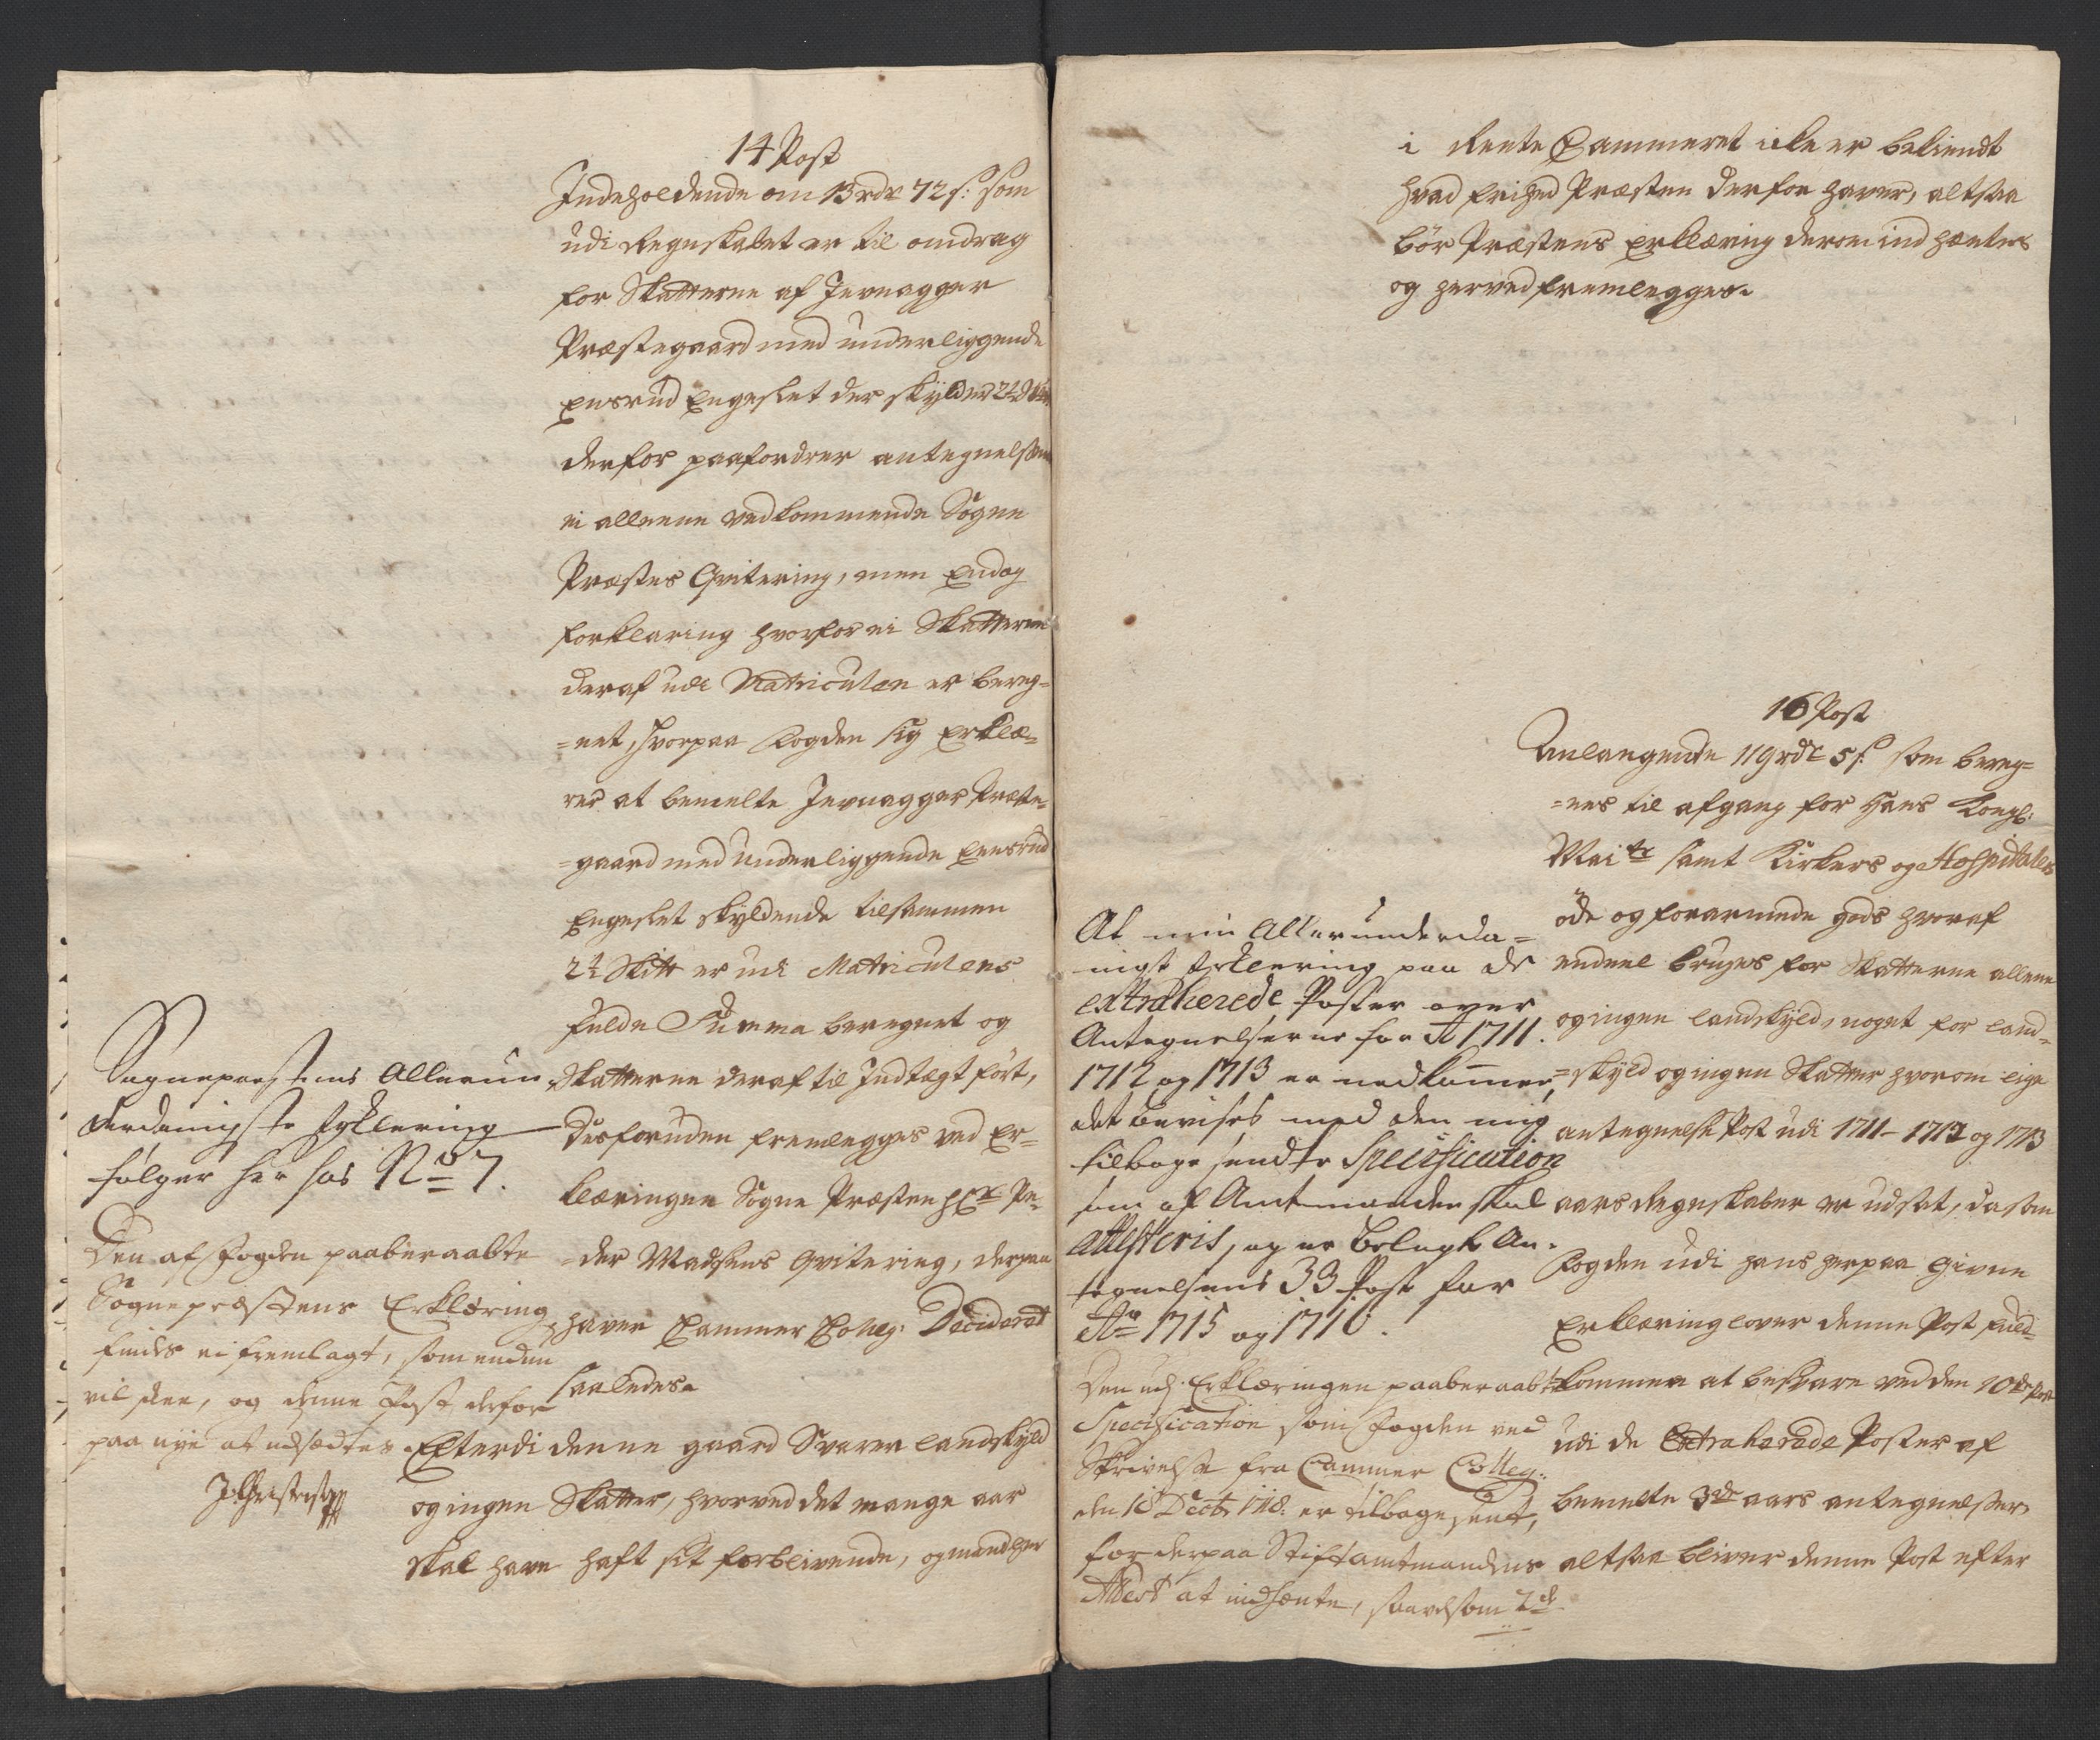 14 Post
Indeholdende om 13 rdr 72 s: som
udi Regnskabet er til omdrag
for Skatterne af Jevnagger
Præstegaard med underliggende
Ensrud Engeslet der skylder 2½
derfor paafordrer antegnelsen
ei alleene vedkommende Sogne
Præstes Qvitering, men Endog
forklaring hvorfor ei Skatterne
deraf udi Matriculen er bereg=
=net, hvorpaa Fogden sig Erklæ=
rer at bemelte Jevnagger Præste=
=gaard med underliggende Ensrud
Engeslet skyldende tilsammen
2½ Skitt er udi Matriculens
fulde Summa beregnet og
Skatterne deraf til Indtægt ført,
Desforuden fremlegges ved Er=
klæringen Sogne Præsten hr Pe=
=der Madsens Qvitering, derpaa
haver Cammer Colleg: Decideret
saaledes.
Efterdi denne gaard Svarer landskyld
og ingen Skatter, hvorved det mange aar
skal have haft sit forblivende, og mand her
Sognepræstens Allerun
derdanigste Erklering
følger her hos No 7.
Den af Fogden paaberaabte
Sognepræstens Erklæring
findes ei fremlagt, som endnu
vil skee, og denne Post derfor
paa nye at udsædtes
i Rente Cammeret icke er bekiendt
hvad frihed Præsten derfor haver, altsaa
bør Præstens Erklæring derom ind hæntes
og herved fremlegges.
16 Post
Anlangende 119 rdr 5 s: som bereg=
=nes til afgang for Hans Kongl:
Maits samt Kirkers og Hospitalers
øde og forarmede gods hvoraf
endeel bruges for Skatterne allene
og ingen landskyld, noget for land=
=skyld og ingen Skatter hvorom lige
antegnelse Post udi 1711- 1712 og 1713
aars Regnskaber er udsat, da som
Fogden udi hans herpaa givne
Erklæring lover denne Post fuld=
kommen at besvare ved den 10de Post
udi de Extraherede Poster af
bemelte 3de aars antegnelser,
altsaa bliver denne Post efter
At min Allerunderda=
nigst Erklering paa de
extraherede Poster over
Antegnelserne for Ao 1711.
1712 og 1713 er nedkommen,
det bevises med den mig
tilbage sendte Specification
som af Amtmanden skal
attesteris, og er belagt An=
tegnelsens 33 Post for
Ao 1715 og 1716.
Den udi Erklæringen paaberaabte
Specification som Fogden ved
Skrivelse fra Cammer Colleg:
den 16 Decbr 1718. er tilbagesent,
for derpaa Stiftamtmandens
Attest at indhente, saavelsom 2de